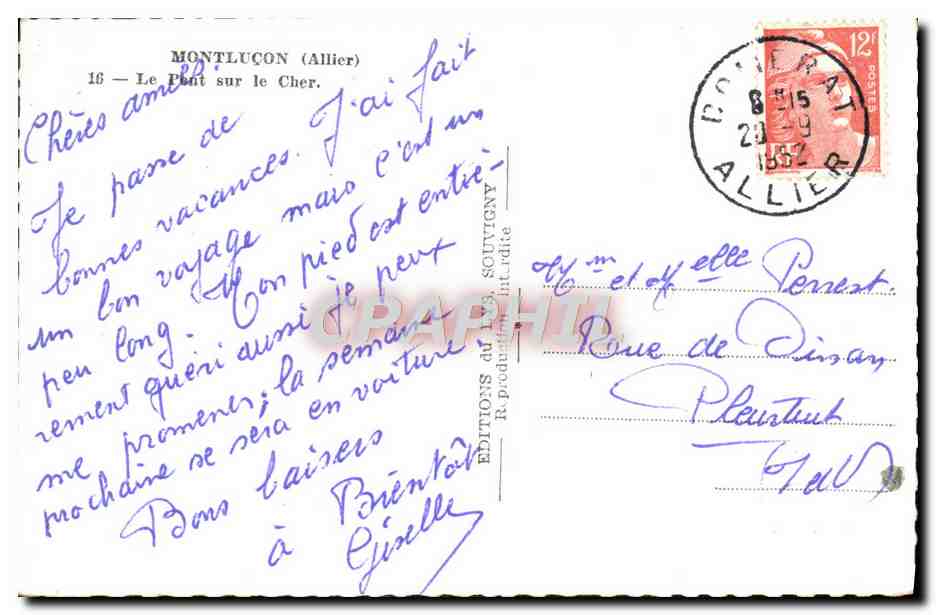 MONTLUÇON (Allier)
16 — Le Pont sur le Cher.
Chères amies.
Je passe de
bonnes vacances. J'ai fait
un bon voyage mais c'est un
peu long. Mon pied est entiè-
rement guéri aussi je peux
me promener; la semaine
prochaine se sera en voiture.
Bons baisers
à Bientôt
Giselle
EDITIONS du LYS, SOUVIGNY
Reproduction interdite
12F
POSTES
DOMERAT
8 H 15
20 - 9
1952
ALLIER
Mm et Melle Perrest.
Rue de Dinan
Pleurtuit
I et V
CRAPHIL